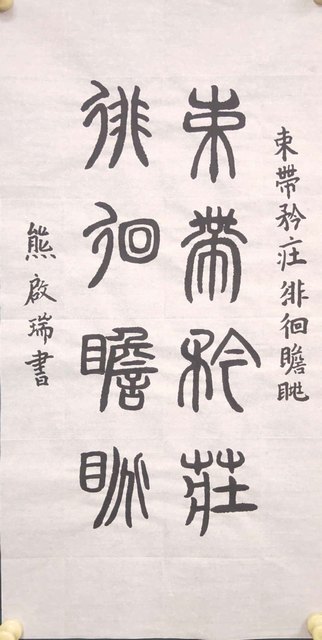 束帶矜莊徘徊瞻眺
束帶矜莊
徘徊瞻眺
熊啟瑞書